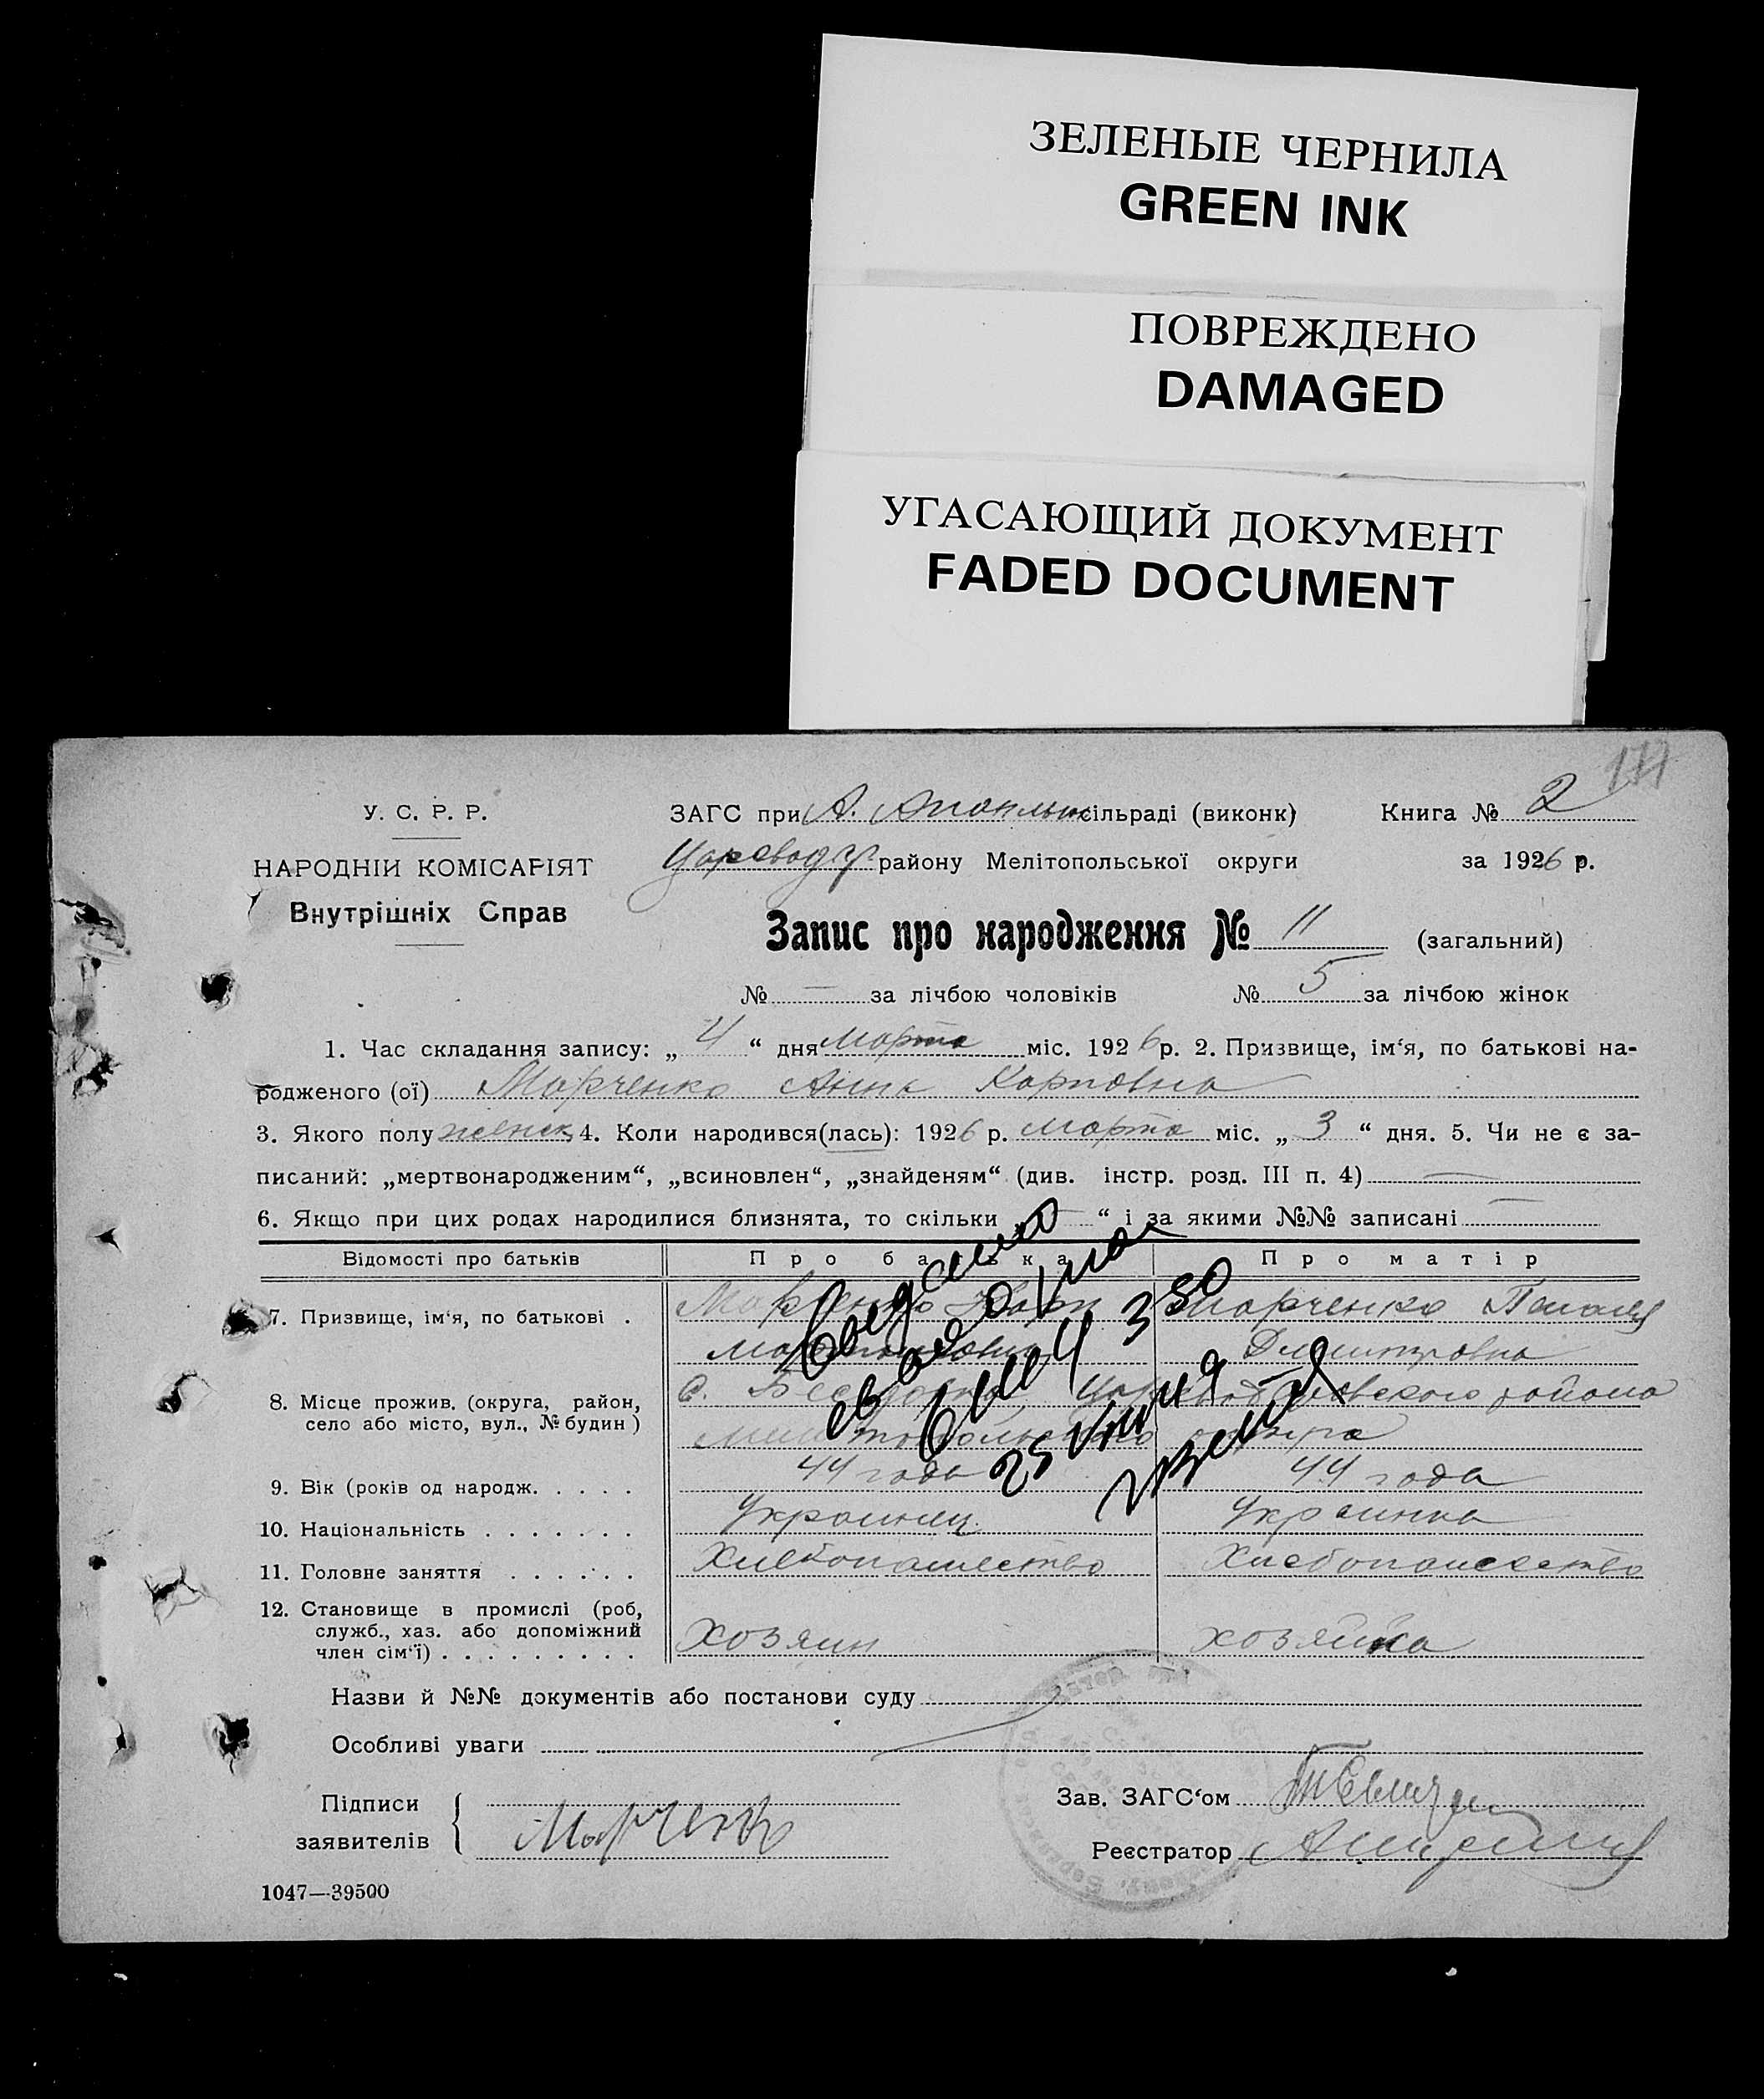 ЗЕЛЕНЫЕ ЧЕРНИЛА
GREEN INK
ПОВРЕЖДЕНО
DAMAGED
УГАСАЮЩИЙ ДОКУМЕНТ
FADED DOCUMENT
У. С. Р. Р.
НАРОДНІЙ КОМІСАРІЯТ
Внутрішніх Справ
ЗАГС при А. сільраді (виконк) Книга № 2
району Мелітопольської округи за 1926 р.
Запис про народження № 11 (загальний)
№ — за лічбою чоловіків № 5 за лічбою жінок
1. Час складання запису: „ 4 “ дня Марта міс. 1926 р. 2. Призвище, ім‘я, по батькові на-
родженого (ої) Марченко Анна Карповна
3. Якого полу женск 4. Коли народився(лась): 1926 р. Марта міс. „ 3 “ дня. 5. Чи не є за-
писаний: „мертвонародженим“, „всиновлен“, „знайденям“ (див. інстр. розд. III п. 4) —
6. Якщо при цих родах народилися близнята, то скільки „ — “ і за якими №№ записані —
Відомості про батьків Про батька Про матір
7. Призвище, ім‘я, по батькові . Марченко Карп Марченко
Дмитровна
8. Місце прожив. (округа, район, село або місто, вул., № будин) С. района
округа
9. Вік (років од народж. . . . . 44 года 44 года
10. Національність . . . . . . . Украинец Украинка
11. Головне заняття . . . . . . Хлебопашество Хлебопашество
12. Становище в промислі (роб, служб., хаз. або допоміжний член сім‘ї) . . . . . . . . . Хозяин хозяйка
Назви й №№ документів або постанови суду
Особливі уваги
Підписи заявителів Марченко
Зав. ЗАГС‘ом
Реєстратор
1047—39500